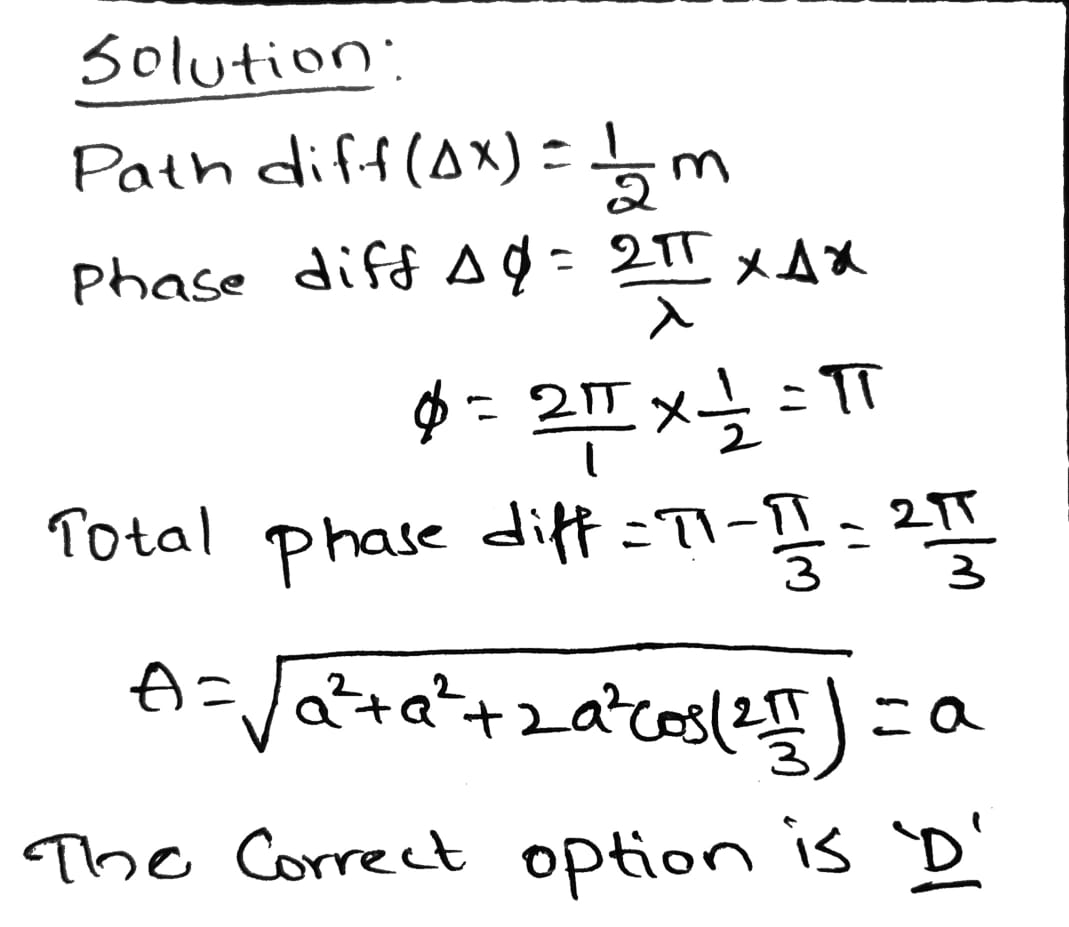 Solution:
Path diff (Δx) = 1/2 m
Phase diff Δϕ = 2π/λ × Δx
ϕ = 2π/1 × 1/2 = π
Total phase diff = π - π/3 = 2π/3
A = √(a² + a² + 2a² cos(2π/3)) = a
The Correct option is 'D'